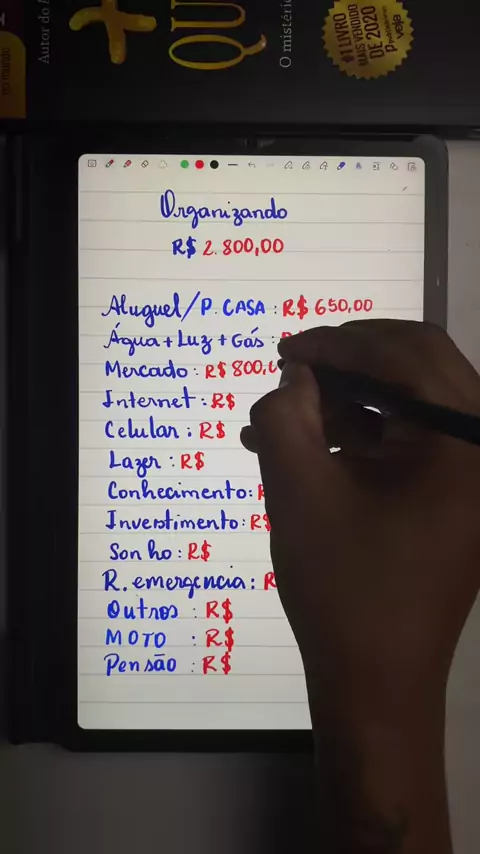 Autor do
+
QU
O mistéri
#1 LIVRO
MAIS VENDIDO
DE 2020
veja
Organizando
R$ 2.800,00
Aluguel/P. CASA : R$ 650,00
Água + Luz + Gás :
Mercado : R$ 800,0
Internet : R$
Celular : R$
Lazer : R$
Conhecimento :
Investimento : R$
Sonho : R$
R. emergencia : R
Outros : R$
MOTO : R$
Pensão : R$